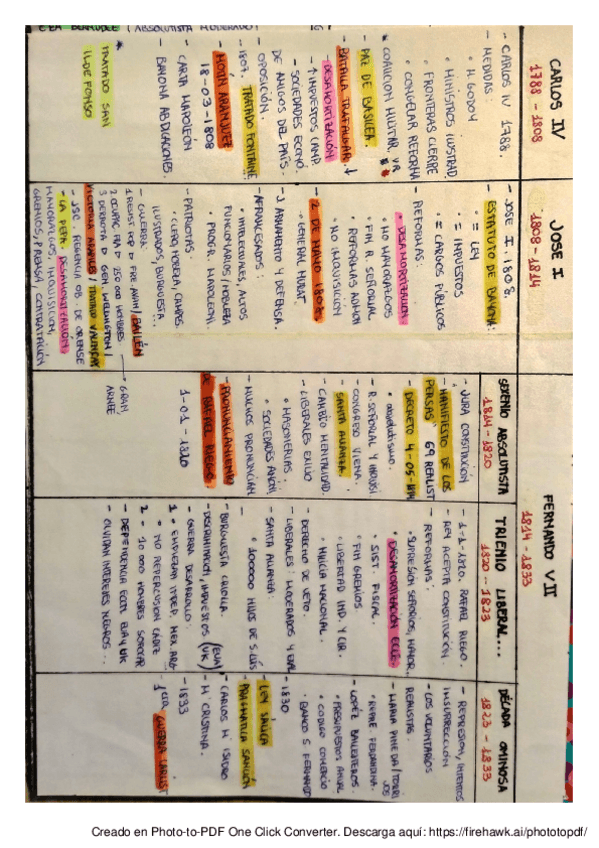 CEA BERMÚDEZ (ABSOLUTISTA MODERADO)
CARLOS IV
1788 - 1808
- CARLOS IV 1788.
- MEDIDAS:
• M. GODOY
• MINISTROS ILUSTRAD.
• FRONTERAS CIERRE
• CONGELAR REFORMA
* COALICIÓN MILITAR. VR
- PAZ DE BASILEA.
- BATALLA TRAFALGAR.
DESAMORTIZACIÓN
- ↑ IMPUESTOS CAMP.
- SOCIEDADES ECONÓ
DE AMIGOS DEL PAÍS.
- OPOSICIÓN.
- 1807. TRATADO FONTAINE
- MOTÍN ARANJUEZ
18-03-1808
- CARTA NAPOLEÓN
- BAYONA ABDICACIONES.
TRATADO SAN
ILDEFONSO
JOSE I
1808 - 1814
- JOSE I. 1808.
- ESTATUTO DE BAYONA:
• = LEY
• = IMPUESTOS
• = CARGOS PÚBLICOS
- REFORMAS:
• DESAMORTIZACIÓN.
• NO MAYORAZGOS
• FIN R. SEÑORIAL
• REFORMAS ADMON
• NO INQUISICIÓN
- 2 DE MAYO 1808.
• GENERAL MURAT.
- J. ARMAMENTO Y DEFENSA.
- AFRANCESADOS:
• INTELECTUALES, ALTOS
FUNCIONARIOS/NOBLEZA
• PROGR. NAPOLEÓNI.
- PATRIOTAS:
• CLERO, NOBLEZA, CAMPES.
ILUSTRADOS, BURGUESÍA..
- GUERRA:
BAILÉN
2 OCUPAC FRA D 250 000 HOMBRES
GRAN
ARMÉE
3 DERROTA D GEN. WELLINGTON /
VICTORIA ARAPILES TRATADO VALENÇAY
- JSC. REGENCIA OB. DE ORENSE
- LA PEPA. DESAMORTIZACIÓN.
MAYORAZGOS, INQUISICIÓN,
GREMIOS, PRENSA, CONTRATACIÓN
FERNANDO VII
1814 - 1833
SEXENIO ABSOLUTISTA
1814 - 1820
- JURA CONSTITUCIÓN
- MANIFIESTO DE LOS
PERSAS 69 REALIST
- DECRETO 4-05-1814
• absolutismo.
- R. SEÑORIAL Y INQUISI
- CONGRESO VIENA.
SANTA ALIANZA.
- CAMBIO MENTALIDAD.
- LIBERALES EXILIO
• MASONERÍAS
• SOCIEDADES
- MUCHOS PRONUNCIAN
- PRONUNCIAMIENTO
DE RAFAEL RIEGO.
1-01-1820
TRIENIO LIBERAL....
1820 - 1823
- 1-1-1820. RAFAEL RIEGO.
- REY ACEPTA CONSTITUCIÓN.
- REFORMAS:
• SUPRESIÓN SEÑORIOS, MAYOR.
• DESAMORTIZACIÓN ECLE.
• SIST. FISCAL.
• FIN GREMIOS
• LIBERTAD IND. Y CIR.
• MILICIA NACIONAL.
- DERECHO DE VETO.
- LIBERALES: MODERADOS Y EXAL
- SANTA ALIANZA:
• 100000 HIJOS DE S LUIS
- BURGUESÍA CRIOLLA. (EUA)
- DISCRIMINACIÓN, IMPUESTOS (UK)
- GUERRA DESARROLLO:
1 - EMPIEZAN MEX. ARG
• NO REPERCUSIÓN CADIZ
2 - 10 000 HOMBRES SOFOCAR
- DEPENDENCIA ECON. EUA y UK
- OLVIDAN INTERESES NEGROS...
DÉCADA OMINOSA
1823 - 1833
- REPRESION, INTENTOS
INSURRECCIÓN
- LOS VOLUNTARIOS
REALISTAS.
- MARIANA PINEDA / TORRI
JOS
• REFORME FERNANDINA.
- LOPEZ BALLESTEROS.
• PRESUPUESTOS ANUAL
• CODIGO COMERCIO
• BANCO S FERNANDO
- 1830
- LEY SÁLICA
PRAGMÁTICA SANCIÓN
- CARLOS Mª ISIDRO
- Mª CRISTINA.
- 1833
1era GUERRA CARLIST
Creado en Photo-to-PDF One Click Converter. Descarga aquí: https://firehawk.ai/phototopdf/